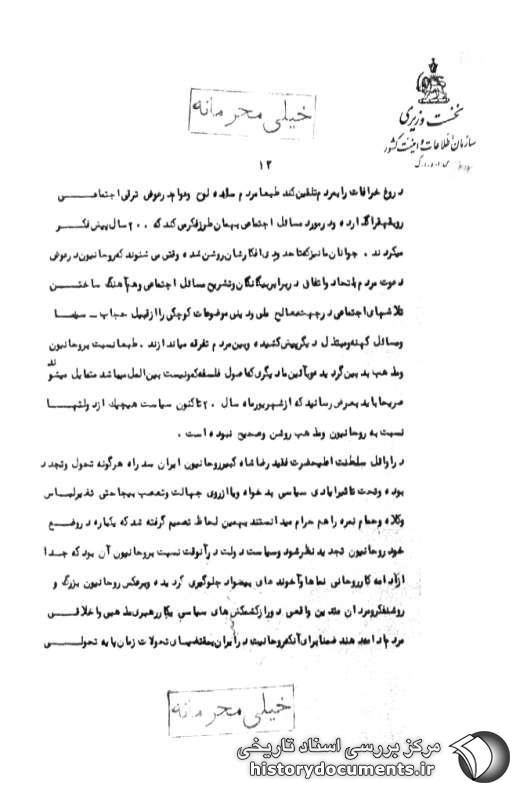 خیلی محرمانه
نخست وزیری
سازمان اطلاعات و امنیت کشور
۱۲
دروغ خرافات را بمردم تلقین کند طبعا مردم ساده لوح و عوام در عوض ترقی اجتماعی
رو بقهقرا گذارده و در مورد مسائل اجتماعی بهمان طرز فکر می کند که ۲۰۰ سال پیش فکر
میکردند . جوانان ما نیز که تا حدودی افکارشان روشن شده وقتی می شنوند که روحانیون در عوض
دعوت مردم باتحاد و اتفاق در برابر بیگانگان و تشریح مسائل اجتماعی و هم آهنگ ساختن
تلاشهای اجتماعی در جهت مصالح ملی و دینی موضوعات کوچکی را از قبیل حجاب - سینما
و مسائل کهنه و مبتذل دیگر پیش کشیده و بین مردم تفرقه میاندازند . طبعا نسبت بروحانیون
و مذهب بدبین گردیده و بآئین مادیگری که اصول فلسفه کمونیست بین المللی میباشد متمایل میشوند
صریحا باید بعرض رسانید که از شهریور ماه سال ۲۰ تا کنون سیاست هیچیک از دولتها
نسبت به روحانیون و مذهب روشن و صحیح نبوده است .
در اوائل سلطنت اعلیحضرت فقید رضا شاه کبیر روحانیون ایران سد راه هرگونه تحول و تجدد
بوده و تحت تاثیر ایادی سیاسی بدخواه و یا از روی جهالت و تعصب بیجا حتی تغییر لباس
و کلاه و حمام نمره را هم حرام میدانستند بهمین لحاظ تصمیم گرفته شد که یکباره در وضع
خود روحانیون تجدید نظر شود و سیاست دولت در آنوقت نسبت بروحانیون آن بود که جدا
از ادامه کار روحانی نماها و آخوند های بیسواد جلوگیری گردیده و برعکس روحانیون بزرگ و
روشنفکر و مردان متدین واقعی دور از کشمکش های سیاسی بکار رهبری مذهبی و اخلاقی
مردم ادامه دهند ضمنا برای آنکه روحانیت در ایران بمقتضای تحولات زمان پا به تحولی
خیلی محرمانه
مرکز بررسی اسناد تاریخی
historydocuments.ir